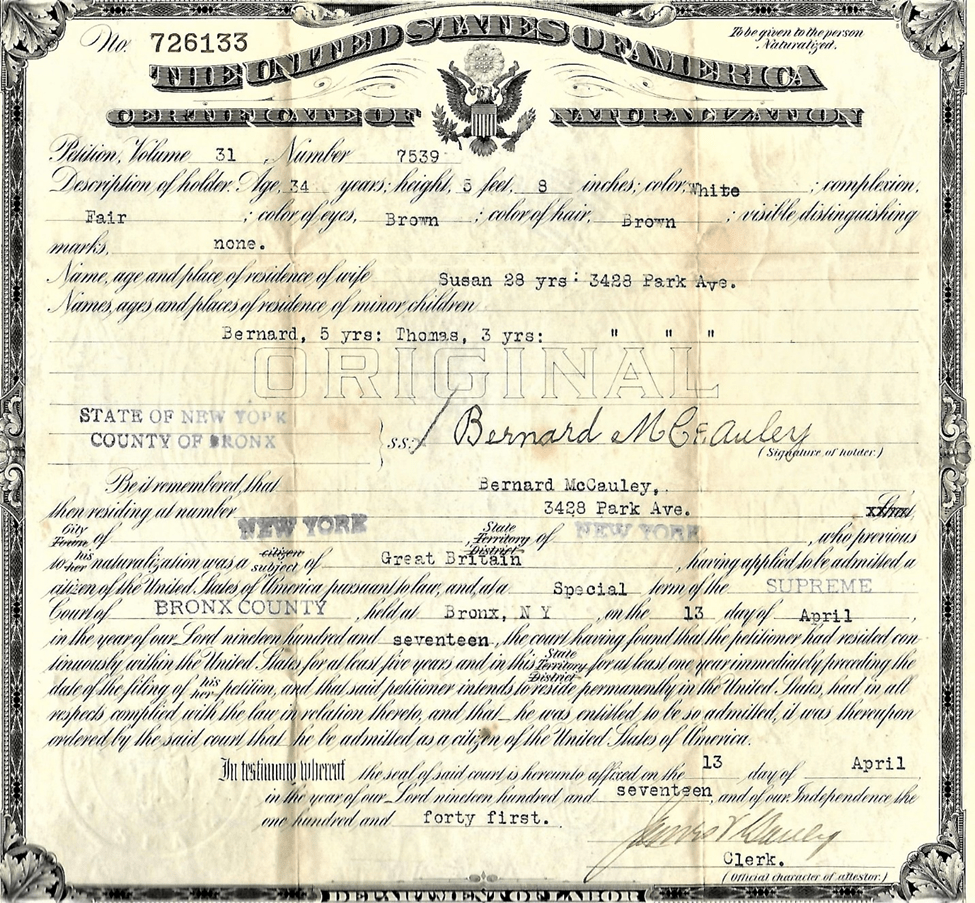 No. 726133
To be given to the person Naturalized.
THE UNITED STATES OF AMERICA
CERTIFICATE OF NATURALIZATION
Petition, Volume 31, Number 7539
Description of holder. Age, 34 years; height, 5 feet, 8 inches; color, White; complexion,
Fair; color of eyes, Brown; color of hair, Brown; visible distinguishing
marks, none.
Name, age and place of residence of wife Susan 28 yrs: 3428 Park Ave.
Names, ages and places of residence of minor children
Bernard, 5 yrs: Thomas, 3 yrs: " " "
ORIGINAL
STATE OF NEW YORK
COUNTY OF BRONX
} S.S.
Bernard McCauley
(Signature of holder.)
Be it remembered, that Bernard McCauley,
then residing at number 3428 Park Ave.
City Town of NEW YORK State Territory District of NEW YORK, who previous
to his her naturalization was a citizen subject of Great Britain, having applied to be admitted a
citizen of the United States of America pursuant to law, and, at a Special term of the SUPREME
Court of BRONX COUNTY held at Bronx, N Y on the 13 day of April,
in the year of our Lord nineteen hundred and seventeen, the court having found that the petitioner had resided con-
tinuously within the United States for at least five years and in this State Territory District for at least one year immediately preceding the
date of the filing of his her petition, and that said petitioner intends to reside permanently in the United States, had in all
respects complied with the law in relation thereto, and that he was entitled to be so admitted, it was thereupon
ordered by the said court that he be admitted as a citizen of the United States of America.
In testimony whereof the seal of said court is hereunto affixed on the 13 day of April
in the year of our Lord nineteen hundred and seventeen, and of our Independence the
one hundred and forty first.
Clerk.
(Official character of attestor.)
DEPARTMENT OF LABOR